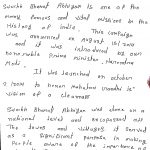 Swachh Bharat Abhiyan is one of the
most famous and vital missions in the
History of India. This campaign
was on August 15, 2014
and it was introduced by our
honourable Prime minister, Narendra
Modi.
It was launched on october
2, to honor mahatma Gandhi's
vision of a clean
Swachh Bharat Abhiyan was done on a
national level and encompassed all
the towns and villages. It served
as a significant in making
People aware of the importance of